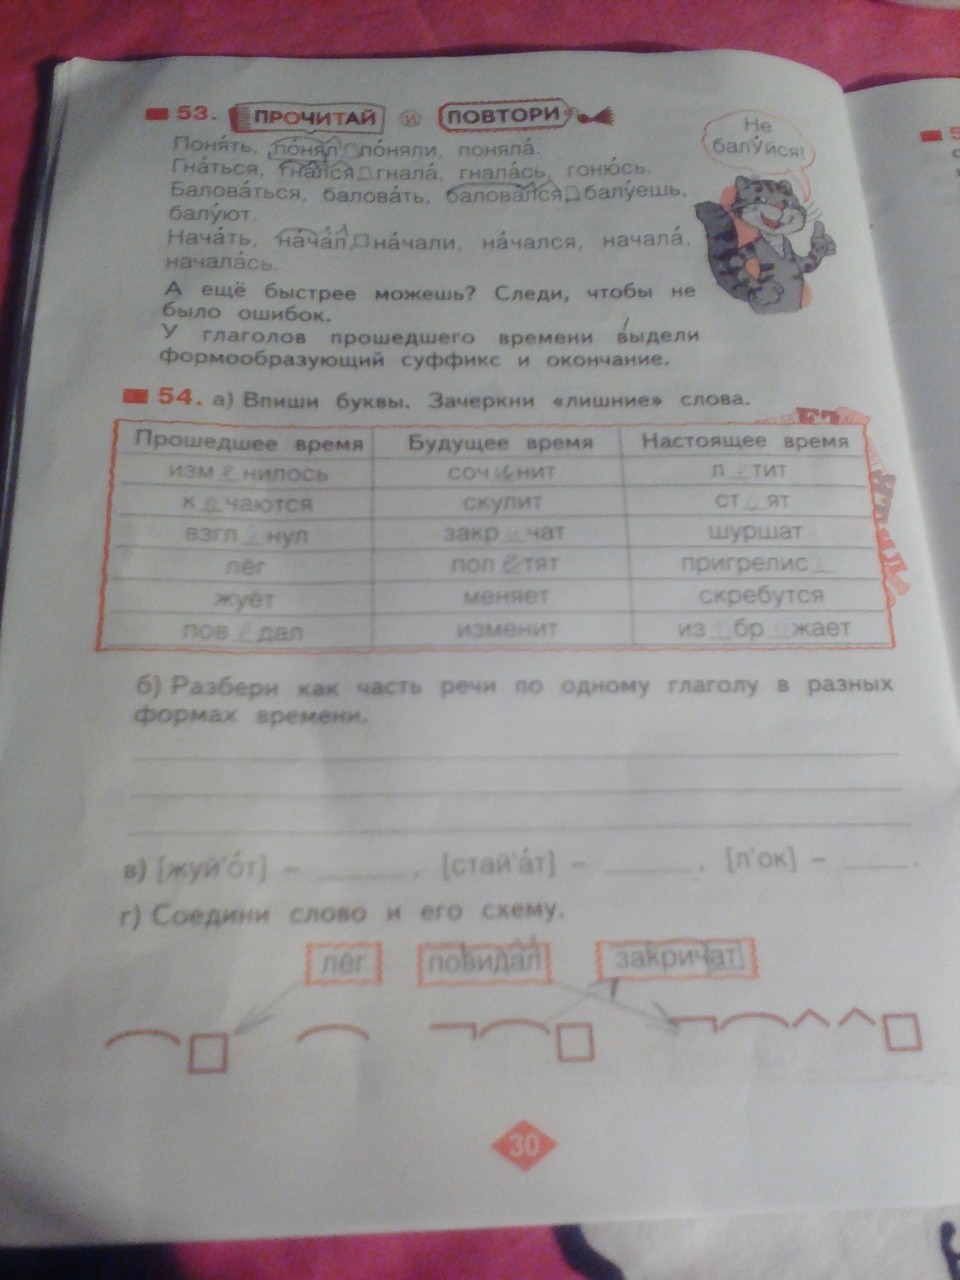 53. ПРОЧИТАЙ И ПОВТОРИ
Не
балу́йся!
Поня́ть, по́нял, по́няли, поняла́.
Гна́ться, гнался, гнала́, гнала́сь, гоню́сь.
Балова́ться, балова́ть, балова́лся, балу́ешь,
балу́ют.
Нача́ть, на́чал, на́чали, на́чался, начала́,
начала́сь.
А ещё быстрее можешь? Следи, чтобы не
было ошибок.
У глаголов прошедшего времени выдели
формообразующий суффикс и окончание.
54. а) Впиши буквы. Зачеркни «лишние» слова.
Прошедшее время Будущее время Настоящее время
изм е нилось соч и нит л е тит
к а чаются скулит ст о ят
взгл _ нул закр и чат шуршат
лёг пол е тят пригрелис _
жуёт меняет скребутся
пов _ дал изменит из _ бр _ жает
б) Разбери как часть речи по одному глаголу в разных
формах времени.
в) [жуй'о́т] – ______, [стай'а́т] – ______, [л'ок] – ____.
г) Соедини слово и его схему.
лёг повидал закричат
30